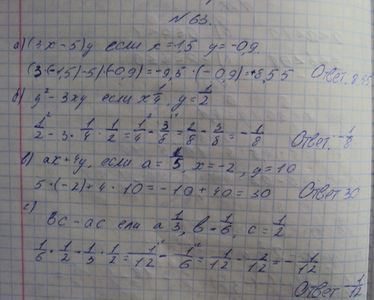 №63.
а) (3x - 5)y если x = -1,5 y = -0,9.
(3·(-1,5)-5)·(-0,9) = -9,5 · (-0,9) = +8,55 Ответ 8,55
б) y² - 3xy если x 1/4, y = 1/2
1²/2 - 3 · 1/4 · 1/2 = 1/4 - 3/8 = 2/8 - 3/8 = -1/8 Ответ: -1/8
в) ax + 4y, если a = 5, x = -2, y = 10
5 · (-2) + 4 · 10 = -10 + 40 = 30 Ответ 30
г)
bc - ac если a 1/3, b = 1/6, c = 1/2
1/6 · 1/2 - 1/3 · 1/2 = 1/12 - 1/6 = 1/12 - 2/12 = -1/12
Ответ -1/12